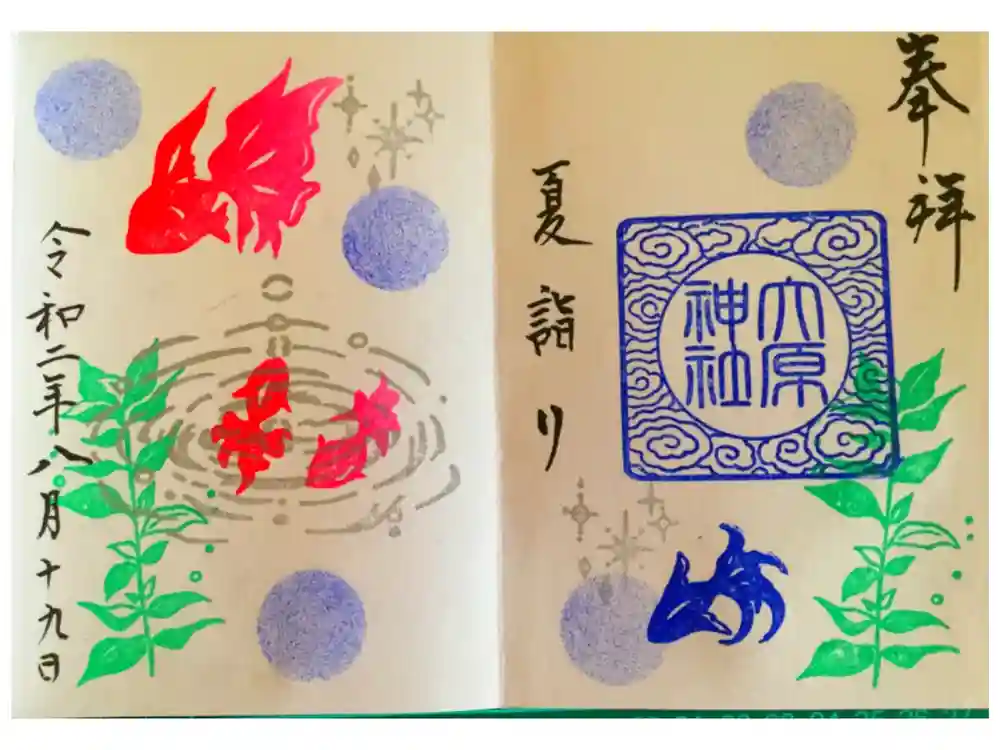 奉拝
大原
神社
夏詣り
令和二年八月十九日